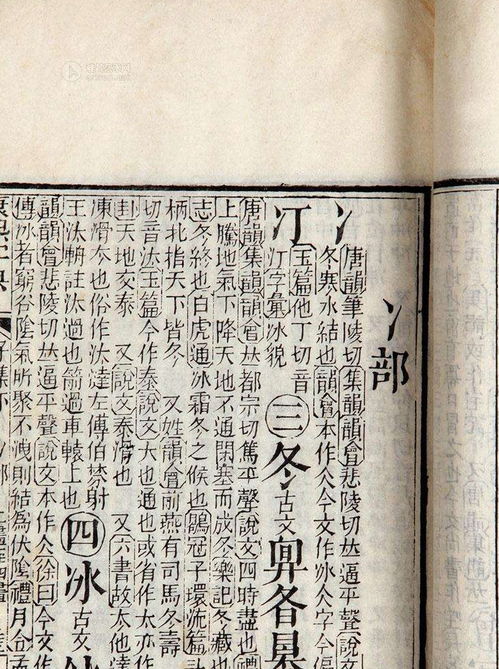 冫部
冫唐韻筆陵切集韻韻會悲陵切𠀤逼平聲說文
冬寒水結也韻會本作仌今文作冰仌字今偏
汀玉篇他丁切音
汀字彙冰貌
三冬古文𠔙各㫡
唐韻集韻韻會𠀤都宗切篤平聲說文四時盡也禮
上騰地氣下降天地不通閉塞而成冬樂記冬藏也
志冬終也白虎通冰霜冬之候也鶡冠子環流篇
柄北指天下皆冬 又姓韻會前燕有司馬冬壽
切音汰玉篇今作泰說文大也通也或省作太亦作
卦天地交泰 又說文泰滑也 又六書故太他達
凍滑夳也俗作汰澾左傳伯棼射
王汰輈註汰過也箭過車轅上也
四冰古文
韻韻會悲陵切𠀤逼平聲說文本作仌徐曰今文作
傅冰者窮谷陰氣所聚不洩則結為伏陰禮月令
康熙字典
子集下
冫部